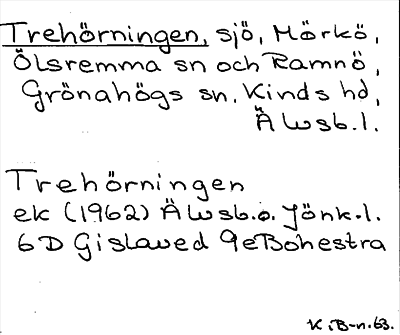 Trehörningen, sjö, Mörkö,
Ölsremma sn och Ramnö,
Grönahögs sn, Kinds hd,
Älvsb.l.
Trehörningen
ek (1962) Älvsb.o. Jönk.l.
6D Gislaved 9e Bohestra
K.B-n.63.